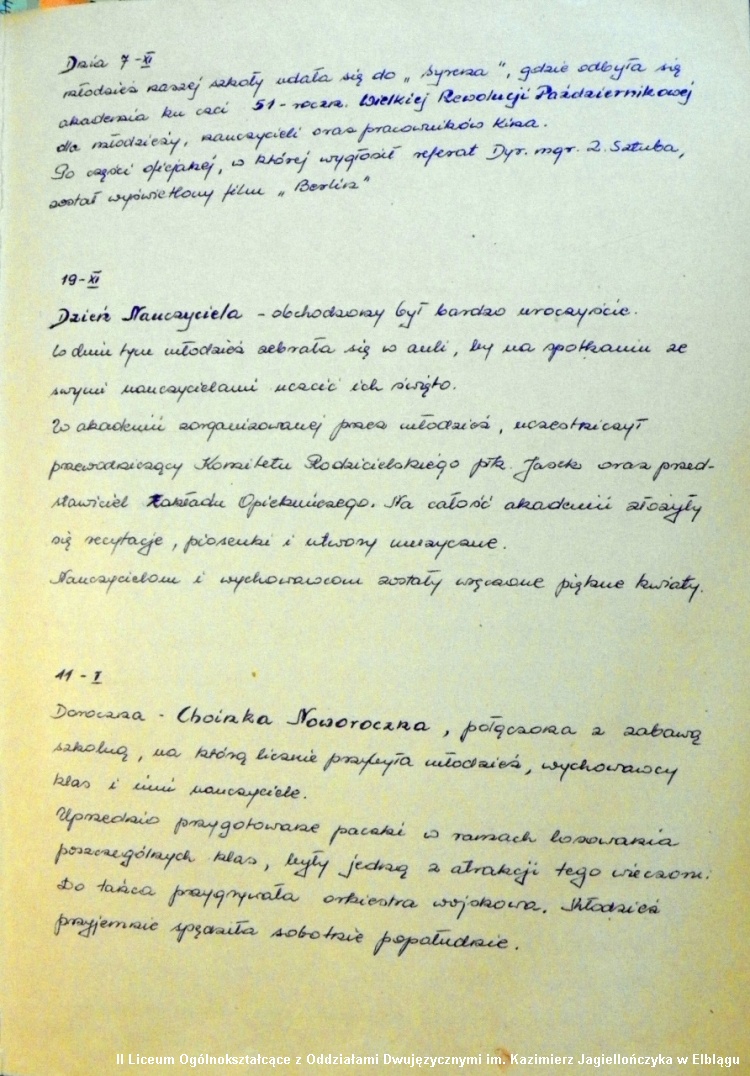 Dnia 7-XI
młodzież naszej szkoły udała się do „Syrena", gdzie odbyła się
akademia ku czci 51-roczn. Wielkiej Rewolucji Październikowej
dla młodzieży, nauczycieli oraz pracowników kina.
Po części oficjalnej, w której wygłosił referat Dyr. mgr. Z. Sztuba,
został wyświetlony film „Berlin"
19-XI
Dzień Nauczyciela - obchodzony był bardzo uroczyście.
W dniu tym młodzież zebrała się w auli, by na spotkaniu ze
swymi nauczycielami uczcić ich święto.
W akademii zorganizowanej przez młodzież, uczestniczył
przewodniczący Komitetu Rodzicielskiego płk. oraz przed-
stawiciel Zakładu Opiekuńczego. Na całość akademii złożyły
się recytacje, piosenki i utwory muzyczne.
Nauczycielom i wychowawcom zostały wręczone piękne kwiaty.
11-I
Doroczna - Choinka Noworoczna, połączona z zabawą
szkolną, na którą licznie przybyła młodzież, wychowawcy
klas i inni nauczyciele.
Uprzednio przygotowane paczki w ramach losowania
poszczególnych klas, były jedną z atrakcji tego wieczoru.
Do tańca przygrywała orkiestra wojskowa. Młodzież
przyjemnie spędziła sobotnie popołudnie.
II Liceum Ogólnokształcące z Oddziałami Dwujęzycznymi im. Kazimierz Jagiellończyka w Elblągu